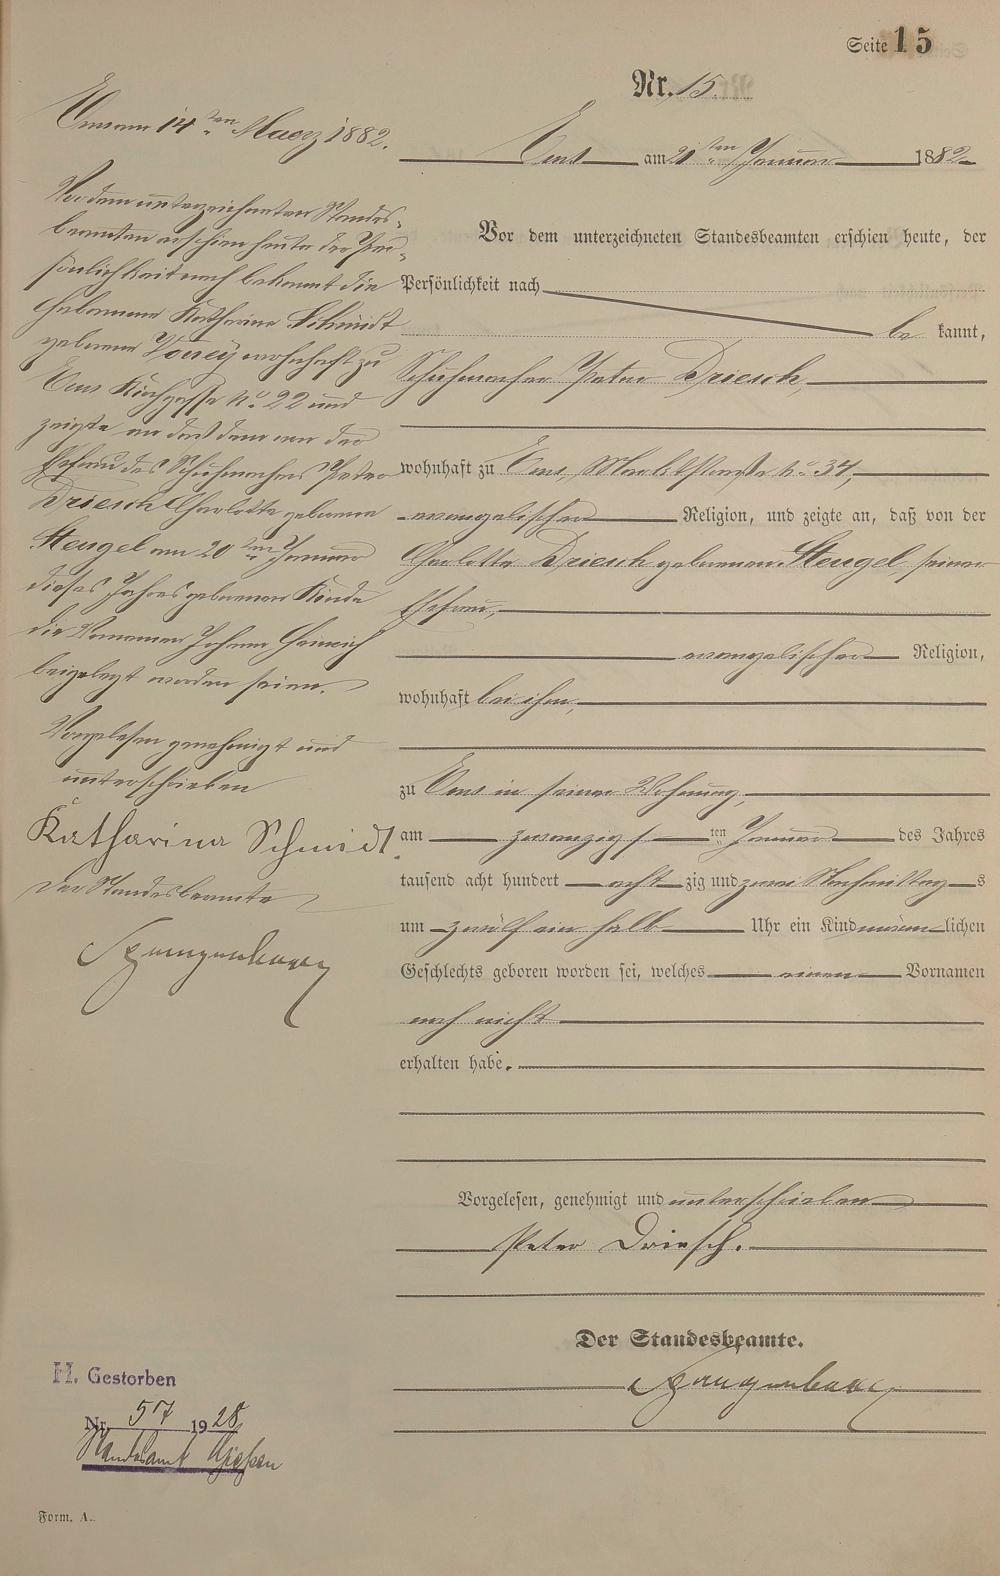 Seite 15
Nr. 15.
Ems am 21ten Januar 1882
Vor dem unterzeichneten Standesbeamten erschien heute, der
Persönlichkeit nach
be kannt,
Schuhmacher Peter Driesch,
wohnhaft zu Ems, Marktstraße No 34,
evangelischer Religion, und zeigte an, daß von der
Charlotte Driesch geborenen Stengel, seiner
Ehefrau,
evangelischer Religion,
wohnhaft bei ihm,
zu Ems in seiner Wohnung,
am zwanzigs ten Januar des Jahres
tausend acht hundert acht zig und zwei Nachmittag s
um zwölf ein halb Uhr ein Kind männ lichen
Geschlechts geboren worden sei, welches einen Vornamen
noch nicht
erhalten habe.
Vorgelesen, genehmigt und unterschrieben
Peter Driesch.
Der Standesbeamte.
Ems am 14ten Maerz 1882.
Vor dem unterzeichneten Standes-
beamten erschien heute der Per-
sönlichkeit nach bekannt die
Hebamme Katharina Schmidt
geborene wohnhaft zu
Ems Kirchgasse No 22 und
zeigte an daß dem von der
Ehefrau des Schuhmachers Peter
Driesch Charlotte geborene
Stengel am 20ten Januar
dieses Jahres geborenen Kinde
die Vornamen Johann Heinrich
beigelegt worden seien.
Vorgelesen genehmigt und
unterschrieben
Katharina Schmidt
Der Standesbeamte
H. Gestorben
Nr. 57 1928
Standesamt Gießen
Form. A.